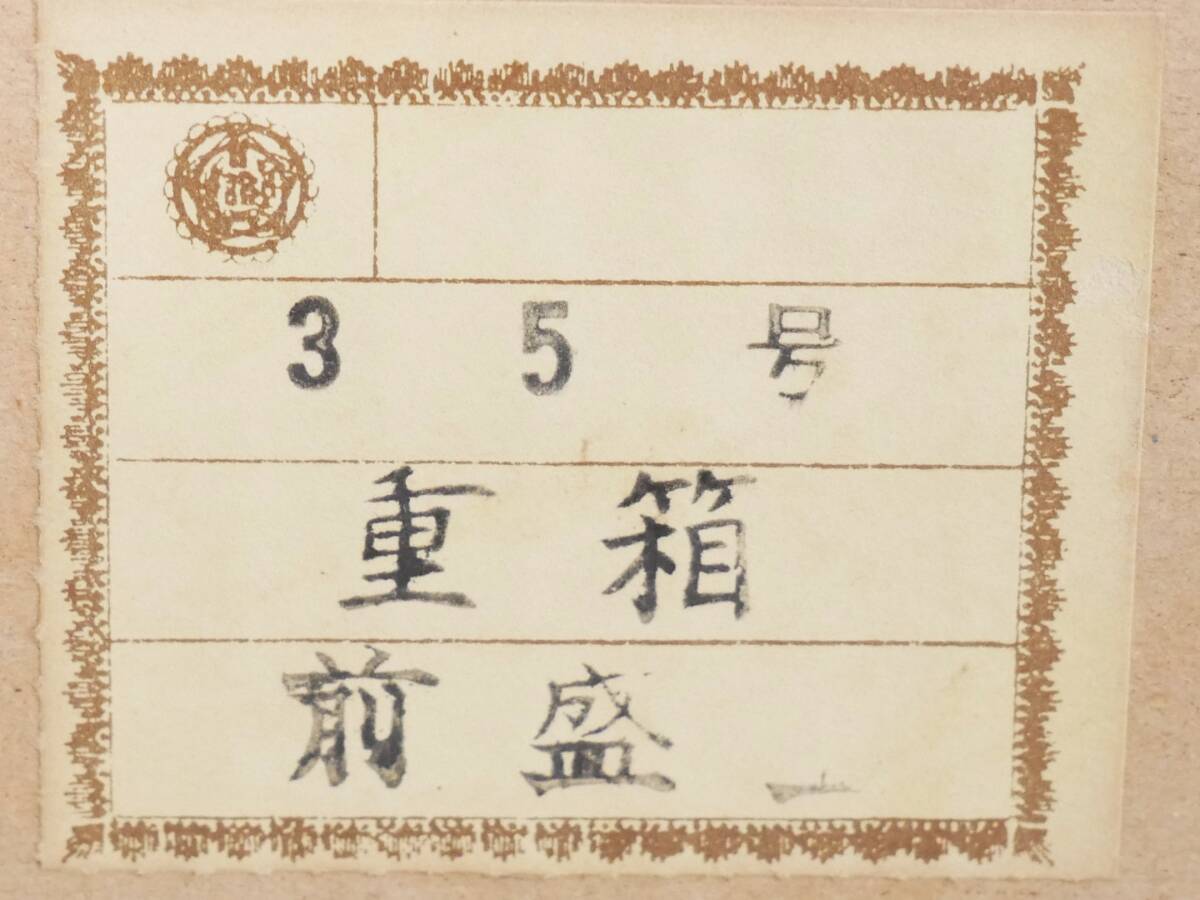 35号
重箱
前盛